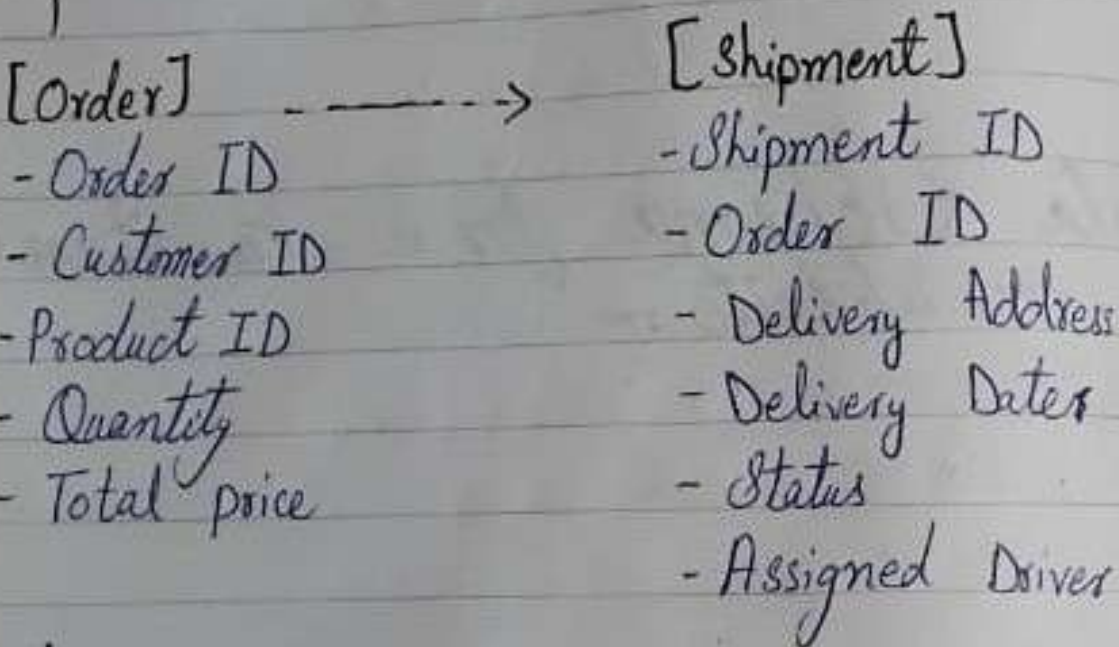 [Order] - - - - - -> [Shipment]
- Order ID
- Customer ID
- Product ID
- Quantity
- Total price
- Shipment ID
- Order ID
- Delivery Address
- Delivery Dates
- Status
- Assigned Driver